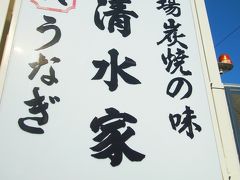 場炭焼の味
清水家
うなぎ